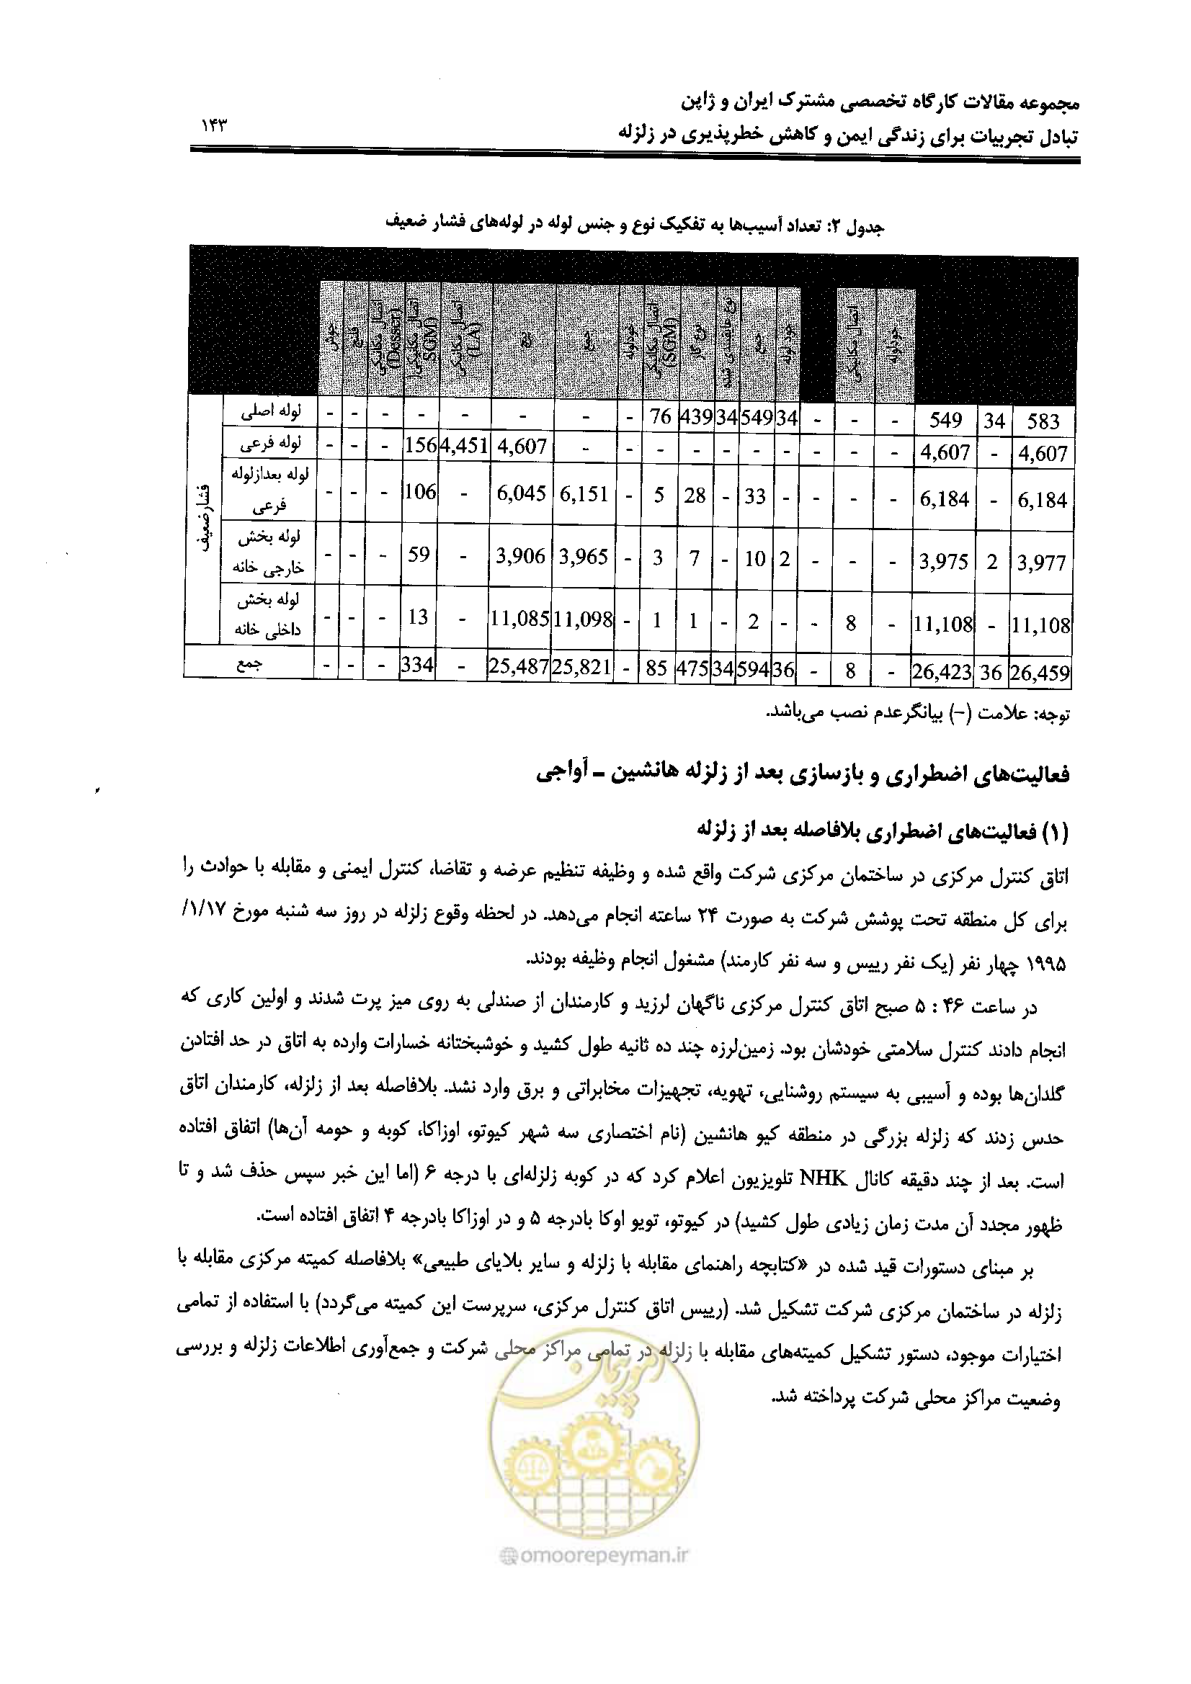 مجموعه مقالات کارگاه تخصصی مشترک ایران و ژاپن
تبادل تجربیات برای زندگی ایمن و کاهش خطرپذیری در زلزله ۱۴۳
جدول ۲: تعداد آسیب‌ها به تفکیک نوع و جنس لوله در لوله‌های فشار ضعیف
جوش فلنج اتصال مکانیکی (Dresser) اتصال مکانیکی( SGM) اتصال مکانیکی (LA) پیچ جمع خودلوله اتصال مکانیکی (SGM) نوع گاز جمع خود لوله اتصال مکانیکی خودلوله
فشار ضعیف
لوله اصلی - - - - - - - - 76 439 34 549 34 - - - 549 34 583
لوله فرعی - - - 156 4,451 4,607 - - - - - - - - - - 4,607 - 4,607
لوله بعدازلوله فرعی - - - 106 - 6,045 6,151 - 5 28 - 33 - - - - 6,184 - 6,184
لوله بخش خارجی خانه - - - 59 - 3,906 3,965 - 3 7 - 10 2 - - - 3,975 2 3,977
لوله بخش داخلی خانه - - - 13 - 11,085 11,098 - 1 1 - 2 - - 8 - 11,108 - 11,108
جمع - - - 334 - 25,487 25,821 - 85 475 34 594 36 - 8 - 26,423 36 26,459
توجه: علامت (–) بیانگرعدم نصب می‌باشد.
فعالیت‌های اضطراری و بازسازی بعد از زلزله هانشین – آواجی
(۱) فعالیت‌های اضطراری بلافاصله بعد از زلزله
اتاق کنترل مرکزی در ساختمان مرکزی شرکت واقع شده و وظیفه تنظیم عرضه و تقاضا، کنترل ایمنی و مقابله با حوادث را
برای کل منطقه تحت پوشش شرکت به صورت ۲۴ ساعته انجام می‌دهد. در لحظه وقوع زلزله در روز سه شنبه مورخ ۱/۱۷/
۱۹۹۵ چهار نفر (یک نفر رییس و سه نفر کارمند) مشغول انجام وظیفه بودند.
در ساعت ۴۶ : ۵ صبح اتاق کنترل مرکزی ناگهان لرزید و کارمندان از صندلی به روی میز پرت شدند و اولین کاری که
انجام دادند کنترل سلامتی خودشان بود. زمین‌لرزه چند ده ثانیه طول کشید و خوشبختانه خسارات وارده به اتاق در حد افتادن
گلدان‌ها بوده و آسیبی به سیستم روشنایی، تهویه، تجهیزات مخابراتی و برق وارد نشد. بلافاصله بعد از زلزله، کارمندان اتاق
حدس زدند که زلزله بزرگی در منطقه کیو هانشین (نام اختصاری سه شهر کیوتو، اوزاکا، کوبه و حومه آن‌ها) اتفاق افتاده
است. بعد از چند دقیقه کانال NHK تلویزیون اعلام کرد که در کوبه زلزله‌ای با درجه ۶ (اما این خبر سپس حذف شد و تا
ظهور مجدد آن مدت زمان زیادی طول کشید) در کیوتو، تویو اوکا بادرجه ۵ و در اوزاکا بادرجه ۴ اتفاق افتاده است.
بر مبنای دستورات قید شده در «کتابچه راهنمای مقابله با زلزله و سایر بلایای طبیعی» بلافاصله کمیته مرکزی مقابله با
زلزله در ساختمان مرکزی شرکت تشکیل شد. (رییس اتاق کنترل مرکزی، سرپرست این کمیته می‌گردد) با استفاده از تمامی
اختیارات موجود، دستور تشکیل کمیته‌های مقابله با زلزله در تمامی مراکز محلی شرکت و جمع‌آوری اطلاعات زلزله و بررسی
وضعیت مراکز محلی شرکت پرداخته شد.
امور پیمان
@omoorepeyman.ir